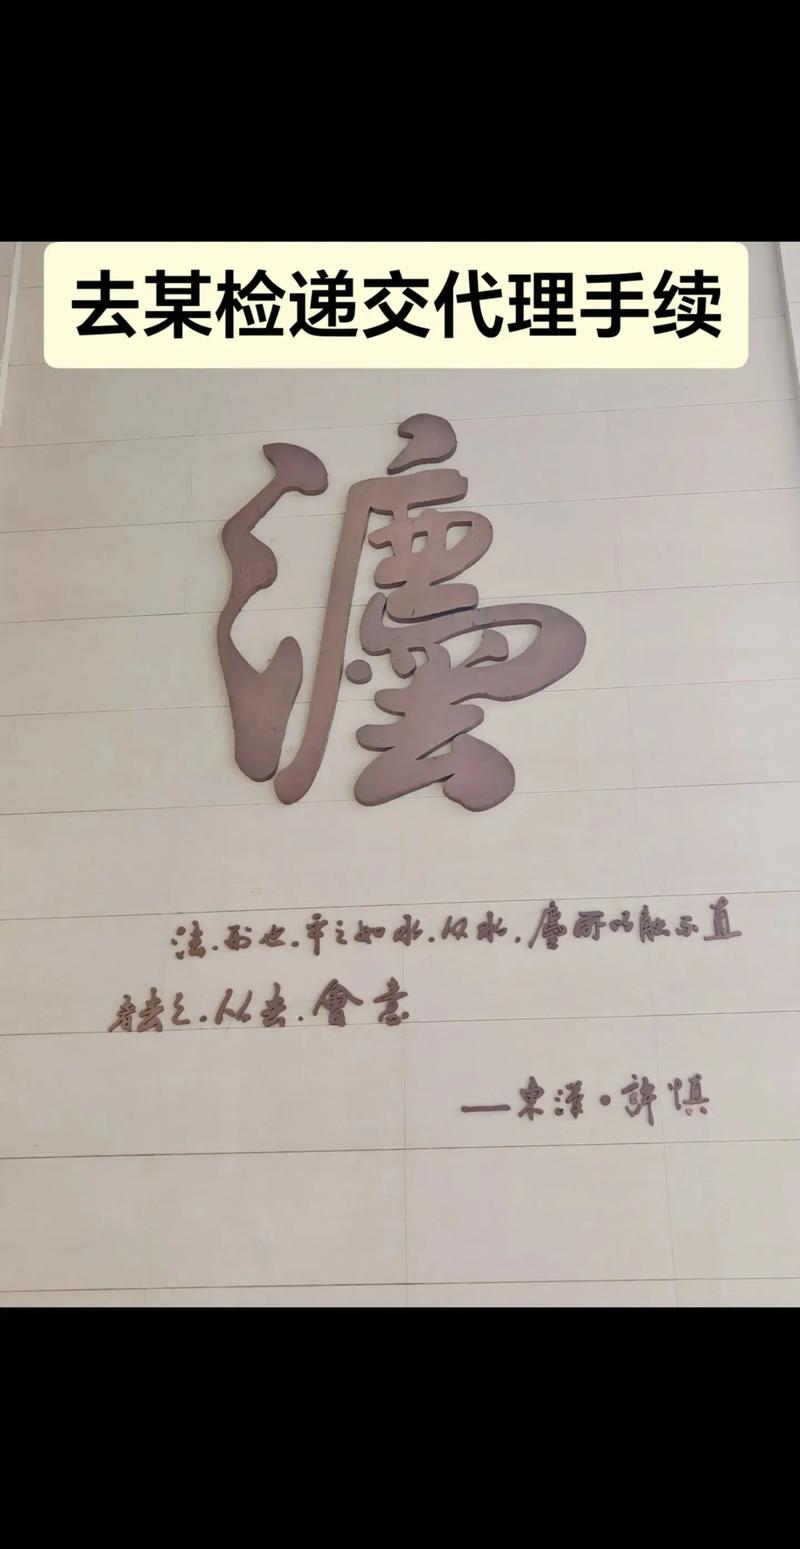 去某检递交代理手续
灋
法.刑也.平之如水.从水.廌所以触不直
者去之.从去.會意
——東漢·許慎